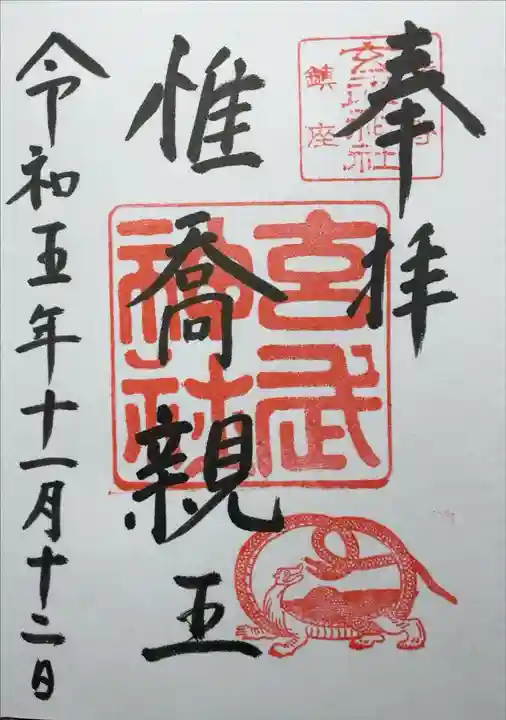 奉拝
惟喬親王
令和五年十一月十二日
玄武神社
鎮座